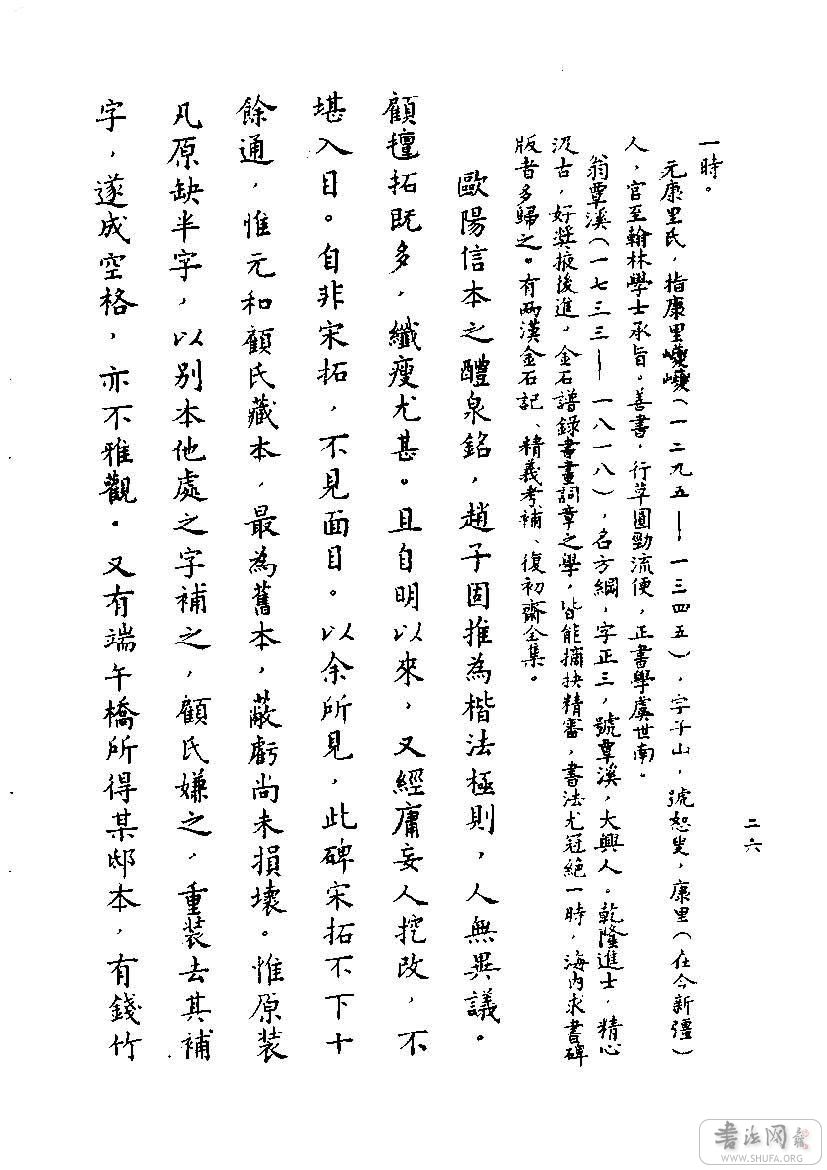 一時。
元康里氏，指康里巎巎（一二九五——一三四五），字子山，號恕叟，康里（在今新疆）
人，官至翰林學士承旨。善書，行草圓勁流便，正書學虞世南。
翁覃溪（一七三三——一八一八），名方綱，字正三，號覃溪，大興人。乾隆進士，精心
汲古，好獎掖後進，金石譜錄書畫詞章之學，皆能摘抉精審，書法尤冠絕一時，海内求書碑
版者多歸之。有兩漢金石記、精義考補、復初齋全集。
歐陽信本之醴泉銘，趙子固推為楷法極則，人無異議。
顧氊拓既多，纖瘦尤甚。且自明以來，又經庸妄人挖改，不
堪入目。自非宋拓，不見面目。以余所見，此碑宋拓不下十
餘通，惟元和顧氏藏本，最為舊本，蔽虧尚未損壞。惟原裝
凡原缺半字，以別本他處之字補之，顧氏嫌之，重装去其補
字，遂成空格，亦不雅觀。又有端午橋所得某邸本，有錢竹
二六
書法网
WWW.SHUFA.ORG